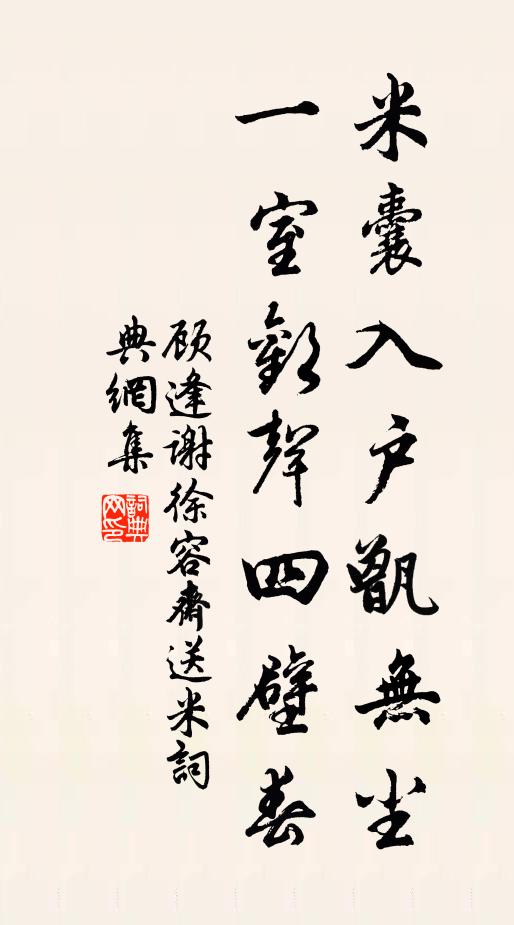 米囊入户甑無尘
一室歡聲四壁春
顾逢谢徐容齋送米詞
典網集
詞典网印